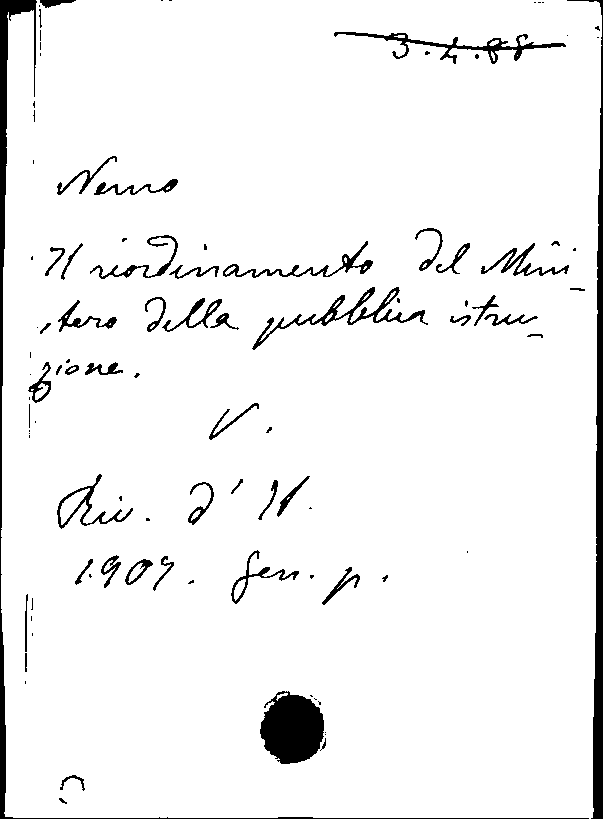 3.4.88
Nemo
Il riordinamento del Mini-
stero della pubblica istru-
zione.
V.
Riv. d'It.
1907. Gen. p.